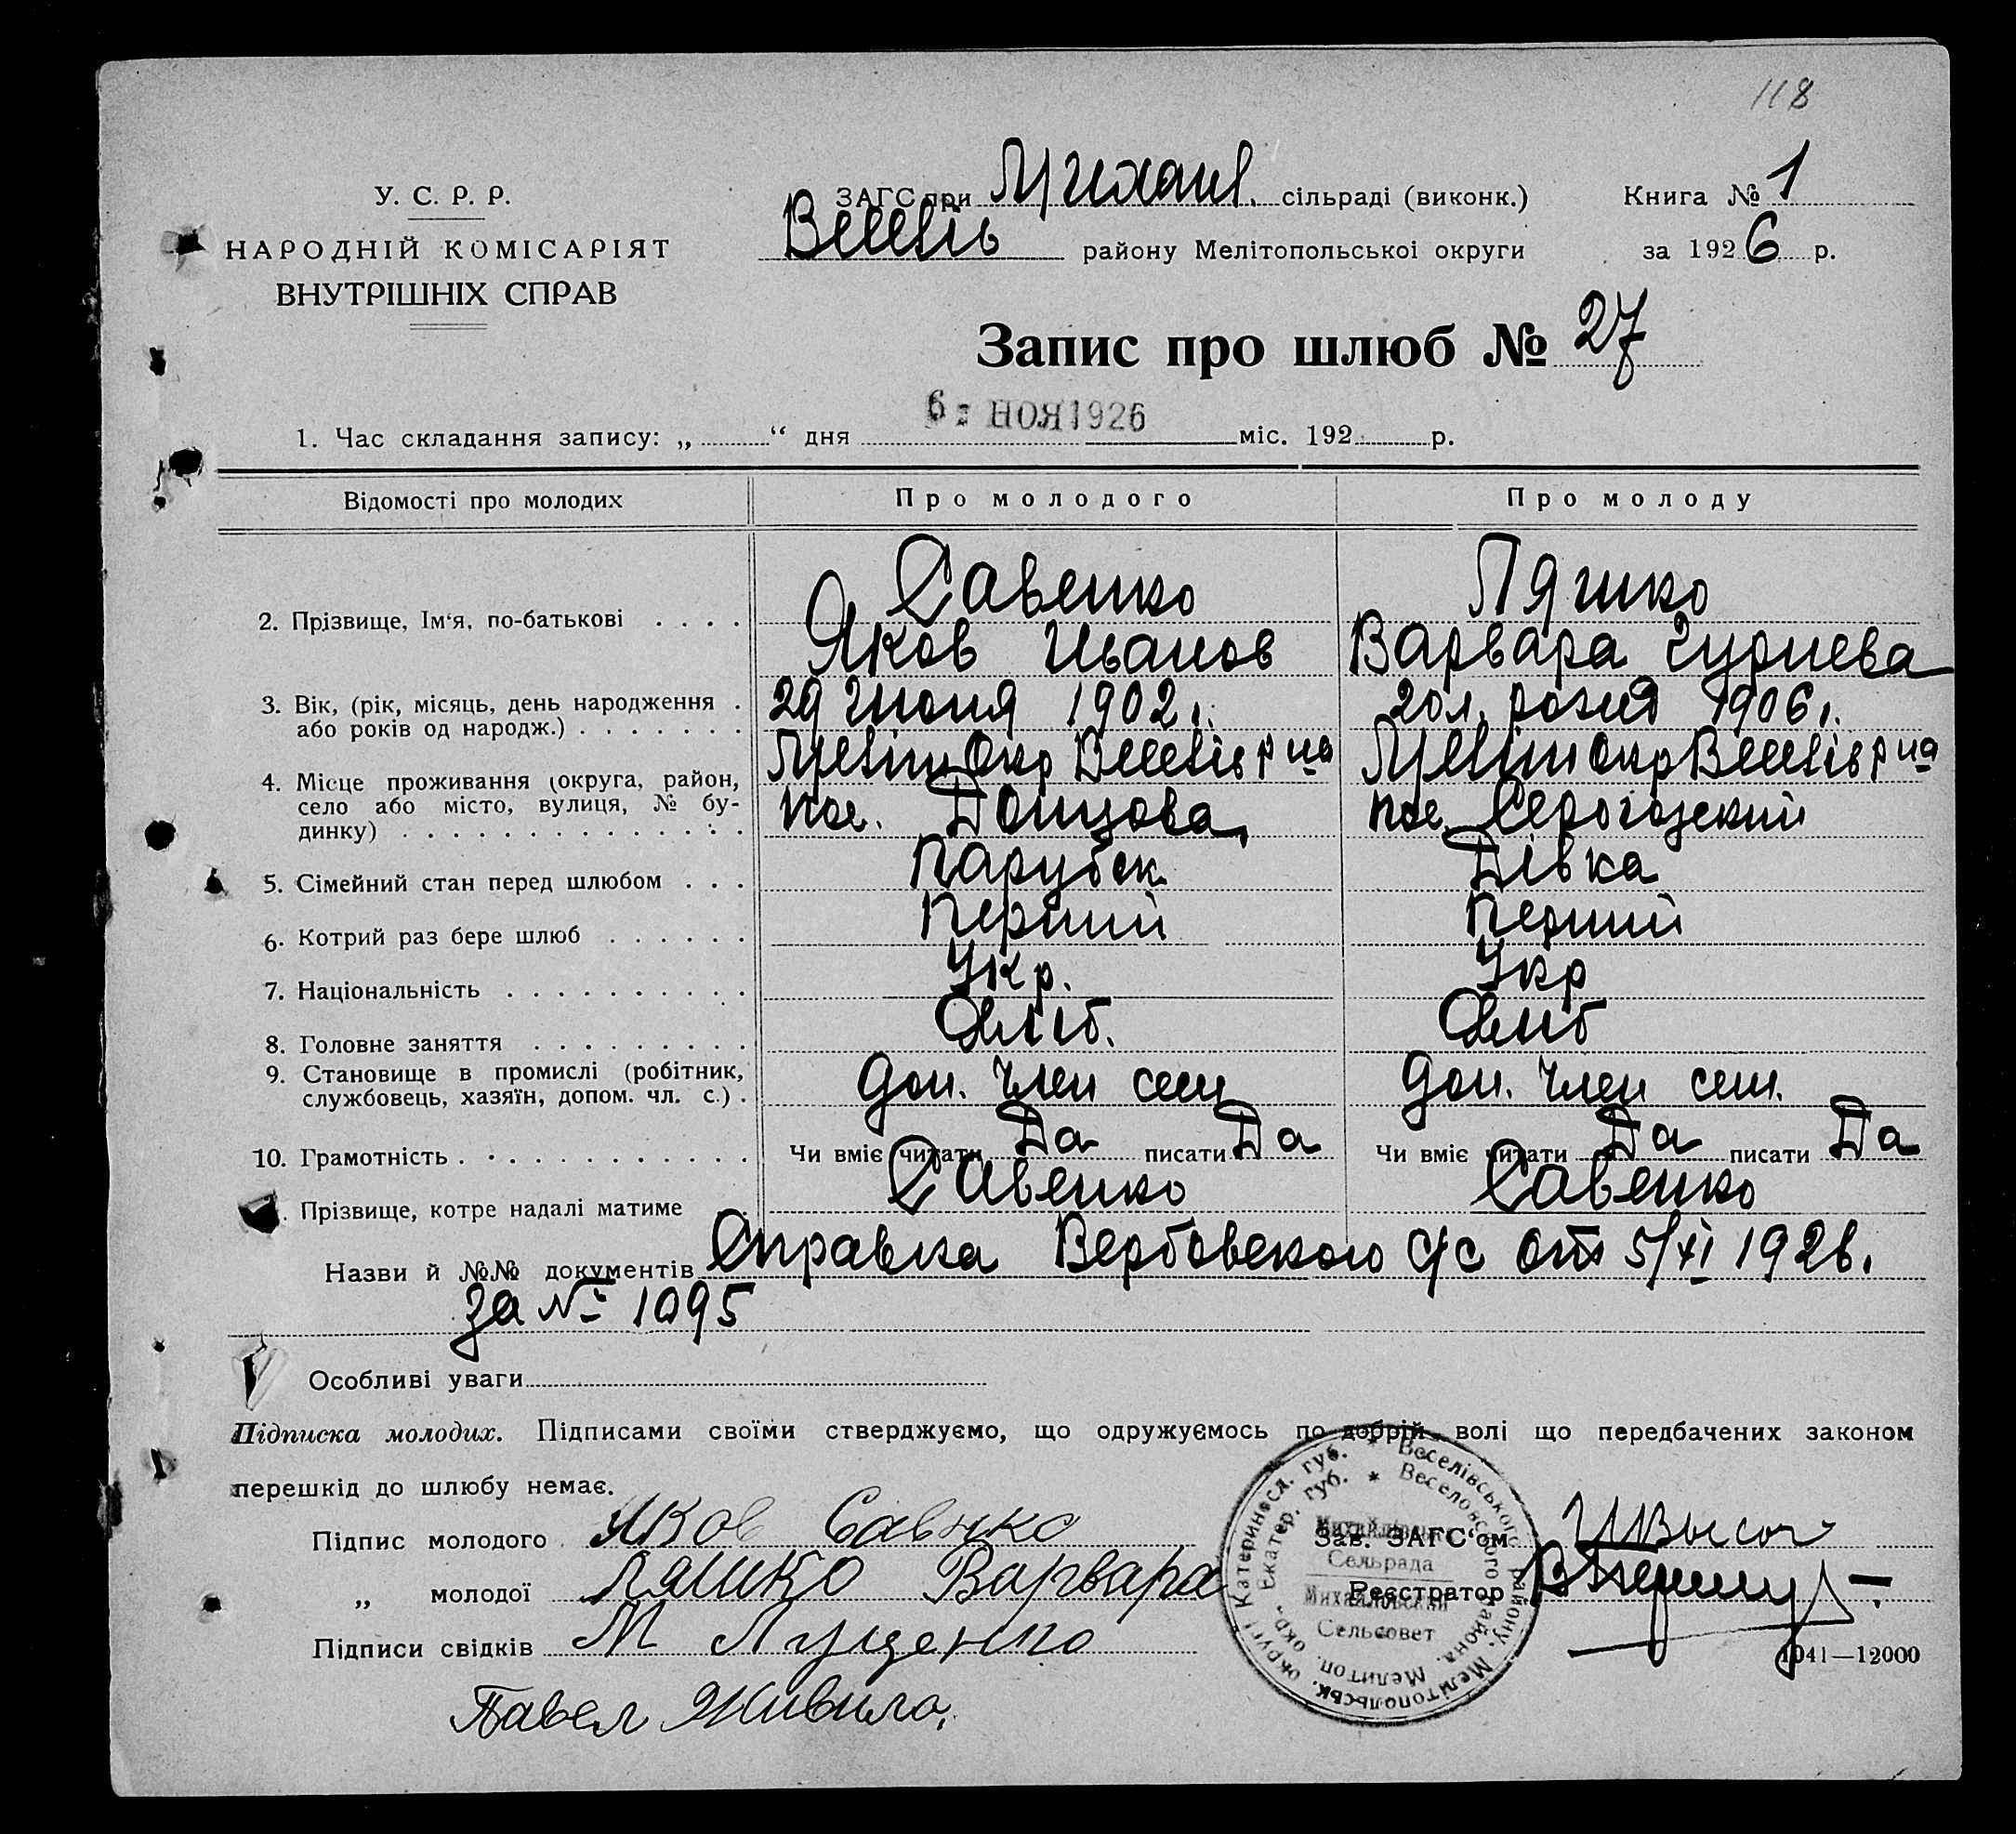 118
У. С. Р. Р.
НАРОДНІЙ КОМІСАРІЯТ
ВНУТРІШНІХ СПРАВ
ЗАГС при Михайл. сільраді (виконк.)
Веселів району Мелітопольськоі округи
Книга № 1
за 1926 р.
Запис про шлюб № 27
1. Час складання запису: „ “ дня 6 - НОЯ 1926 міс. 192 р.
Відомості про молодих Про молодого Про молоду
Савенко Ляшко
2. Прізвище, Ім'я, по-батькові . . . .
Яков Иванов Варвара Гуриева
3. Вік, (рік, місяць, день народження .
29 Июня 1902 г. 20 л. рожд 1906 г.
або років од народж.) . . . . . . .
Меліт Окр Веселів р на Меліт Окр Веселів р на
4. Місце проживання (округа, район,
село або місто, вулиця, № бу-
динку) . . . . . . . . . . . . . .
пос. Донцова пос. Серогозский
5. Сімейний стан перед шлюбом . . . Парубок Дівка
6. Котрий раз бере шлюб . . . . . . Перший Перший
7. Національність . . . . . . . . . . Укр. Укр
8. Головне заняття . . . . . . . . . Хліб. Хліб
9. Становище в промислі (робітник,
службовець, хазяїн, допом. чл. с.) . Доп. Член сем Доп. Член сем.
10. Грамотність . . . . . . . . . . . . Чи вміє читати Да писати Да Чи вміє читати Да писати Да
. Прізвище, котре надалі матиме Савенко Савенко
Назви й №№ документів Справка Вербовского с/с от 5/XI 1926.
за № 1095
Особливі уваги
Підписка молодих. Підписами своїми стверджуємо, що одружуємось по добрій волі що передбачених законом
перешкід до шлюбу немає.
Підпис молодого Яков Савнко
„ молодої Ляшко Варвара
Підписи свідків М Луценко
Павел Живило.
Зав. ЗАГС'ом
Реєстратор
1041—12000
Катериносл. губ. * Веселівського району. Мелітопольськ. округі
Екатер. губ. * Веселовского района. Мелитоп. окр.
Михайлівська
Сельрада
Михайловский
Сельсовет